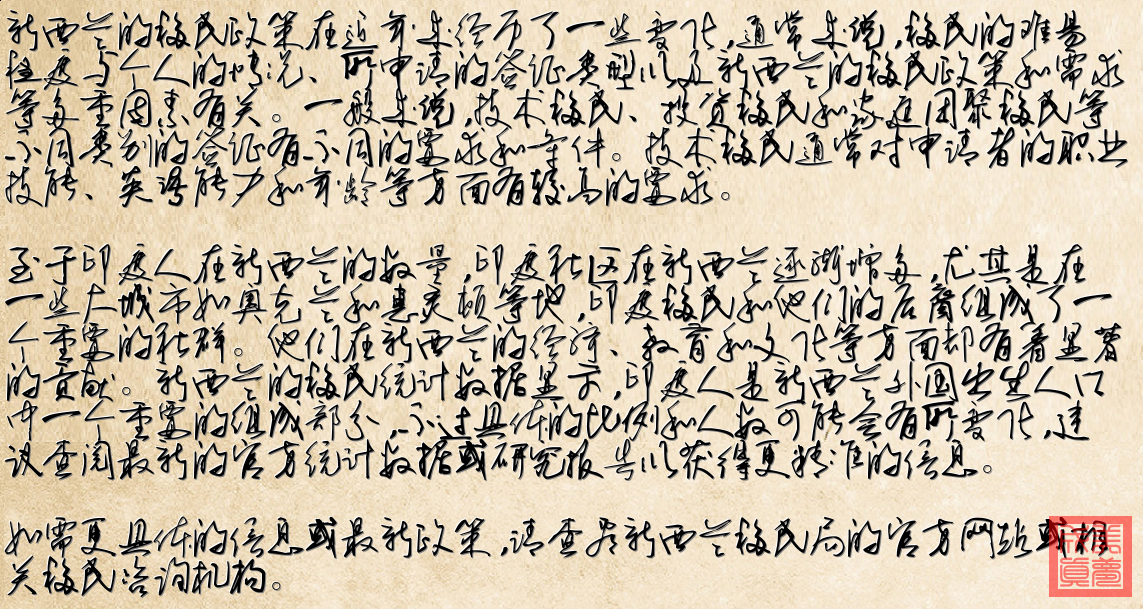 新西兰的移民政策在近年来经历了一些变化，通常来说，移民的难易
程度与个人的情况、所申请的签证类型以及新西兰的移民政策和需求
等多重因素有关。一般来说，技术移民、投资移民和家庭团聚移民等
不同类别的签证有不同的要求和条件。技术移民通常对申请者的职业
技能、英语能力和年龄等方面有较高的要求。
至于印度人在新西兰的数量，印度社区在新西兰逐渐增多，尤其是在
一些大城市如奥克兰和惠灵顿等地，印度移民和他们的后裔组成了一
个重要的社群。他们在新西兰的经济、教育和文化等方面都有着显著
的贡献。新西兰的移民统计数据显示，印度人是新西兰外国出生人口
中一个重要的组成部分，不过具体的比例和人数可能会有所变化，建
议查阅最新的官方统计数据或研究报告以获得更精准的信息。
如需更具体的信息或最新政策，请查看新西兰移民局的官方网站或相
关移民咨询机构。